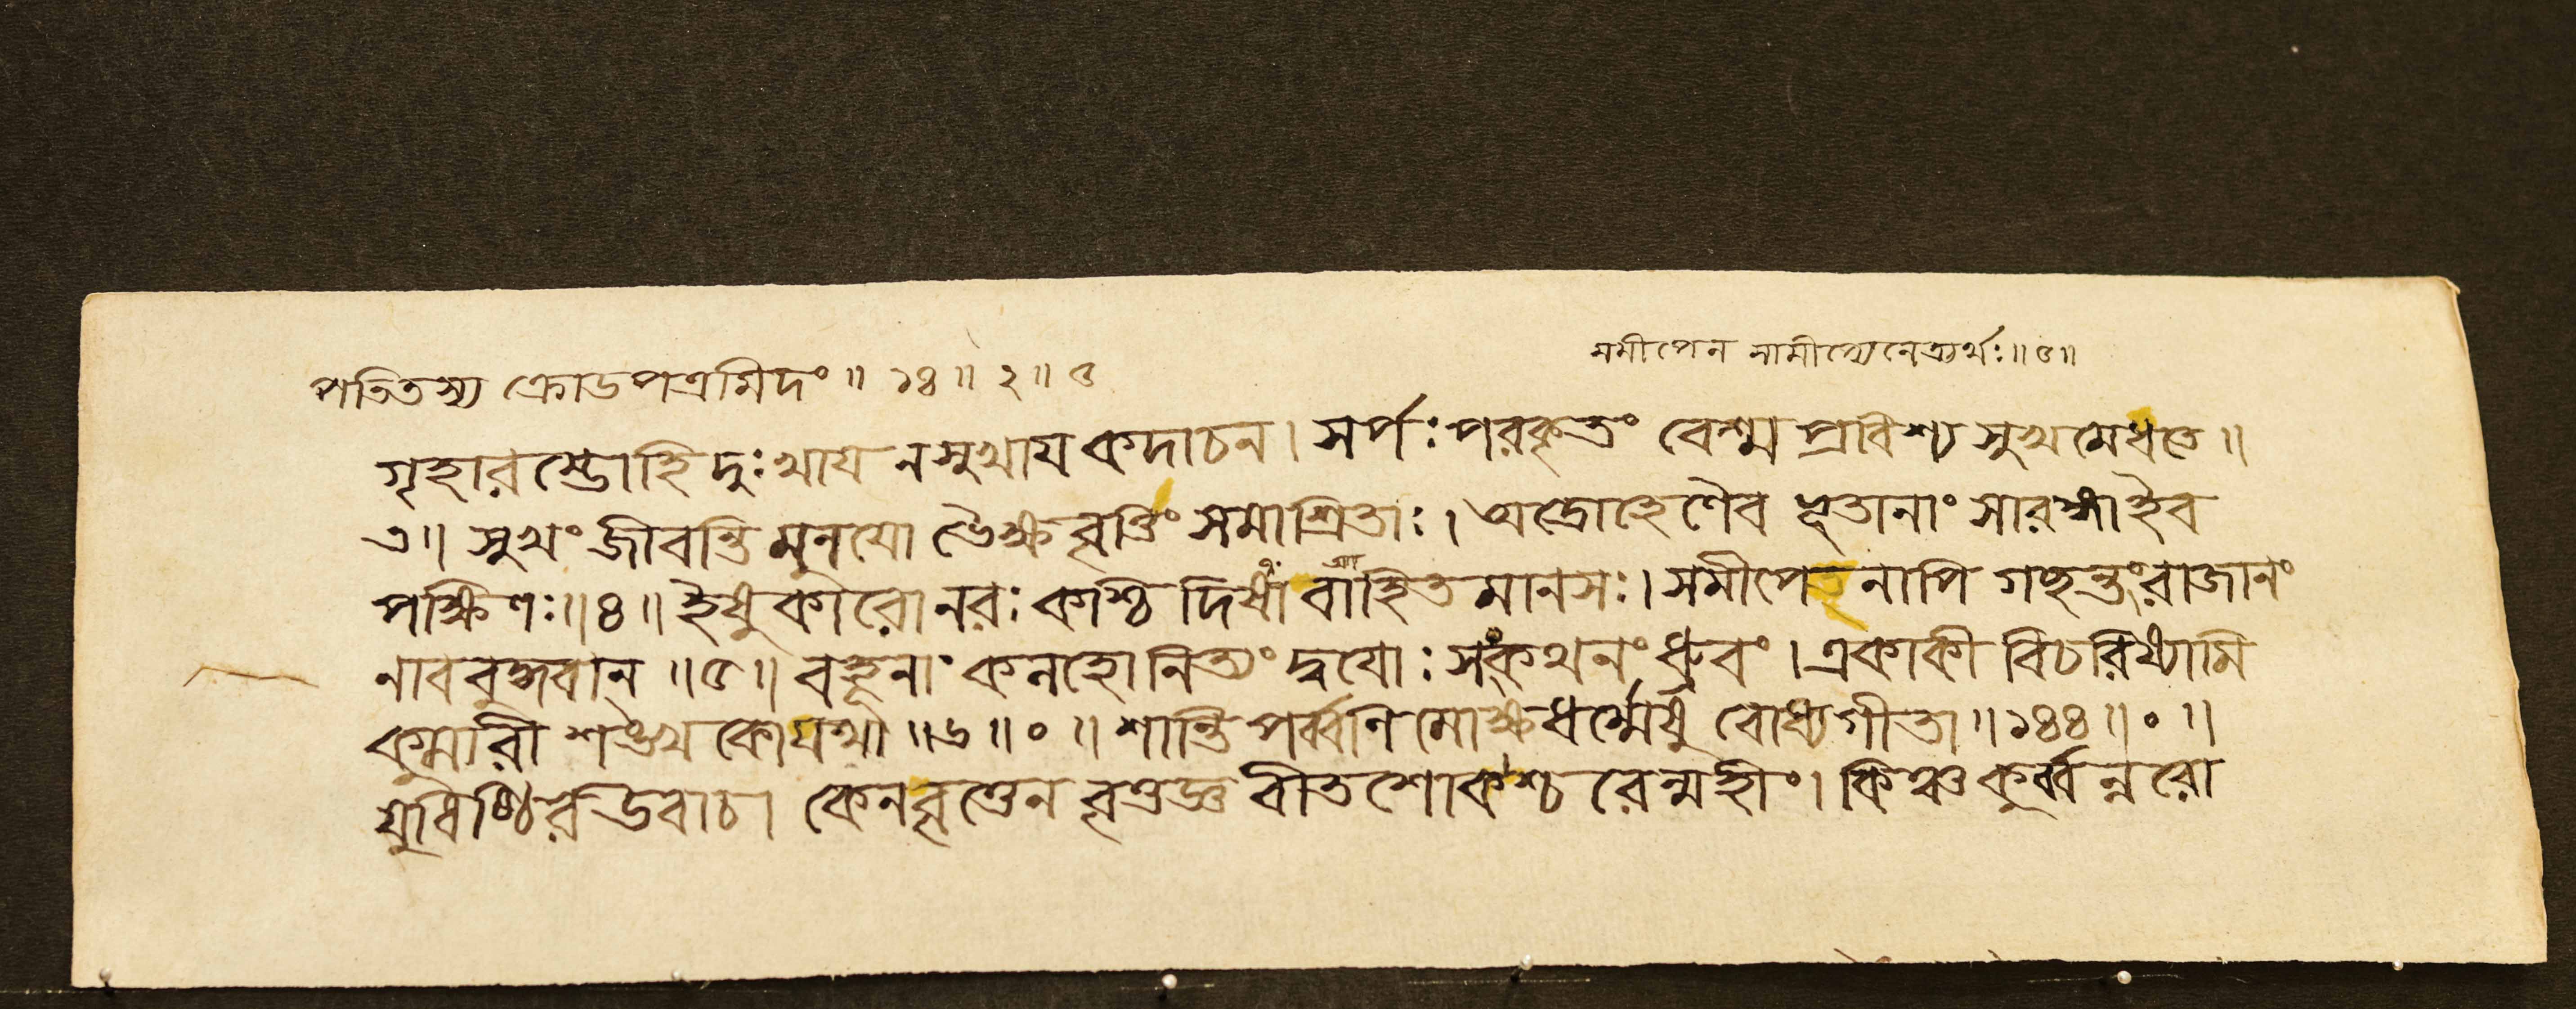 সমীপেন সামীপ্যেনেত্যর্থঃ॥৫॥
পতিতস্য ক্রোডপত্রমিদং॥ ১৪॥ ২॥ ৫
গৃহারম্ভোহি দুঃখায ন সুখায কদাচন। সর্পঃ পরকৃতং বেশ্ম প্রবিশ্য সুখমেধতে॥
৩॥ সুখং জীবন্তি মুনযো ভৈক্ষবৃত্তিং সমাশ্রিতাঃ। অদ্রোহেণৈব ভূতানাং সারঙ্গাইব
পক্ষিণঃ॥৪॥ ইষুকারোনরঃ কশ্চিদিষাবাহিতমানসঃ। সমীপেনাপি গচ্ছন্তং রাজানং
নাববুদ্ধবান্॥৫॥ বহূনাং কলহোনিত্যং দ্বযোঃ সংকথনং ধ্রুবং। একাকী বিচরিষ্যামি
কুমারী শঙ্খকোযথা॥৬॥०॥ শান্তিপর্ব্বণি মোক্ষধর্ম্মেষু বোধ্যগীতা॥১৪৪॥०॥
যুধিষ্ঠিরউবাচ। কেনবৃত্তেন বৃত্তজ্ঞ বীতশোকশ্চরেন্মহীং। কিঞ্চ কুর্ব্বন্নরো